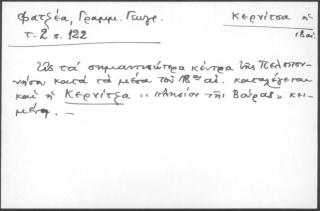 Φατζέα, Γραμμ. Γεωγρ.
Κερνίτσα ἡ
τ. 2 σ. 122
18 αἰ.
Εἰς τά σημαντικώτερα κέντρα τῆς Πελοπον-
νήσου κατά τά μέσα τοῦ 18ου αἰ. καταλέγεται
καί ἡ Κερνίτζα "πλησίον τῆς Βούρας" κει-
μένη. —